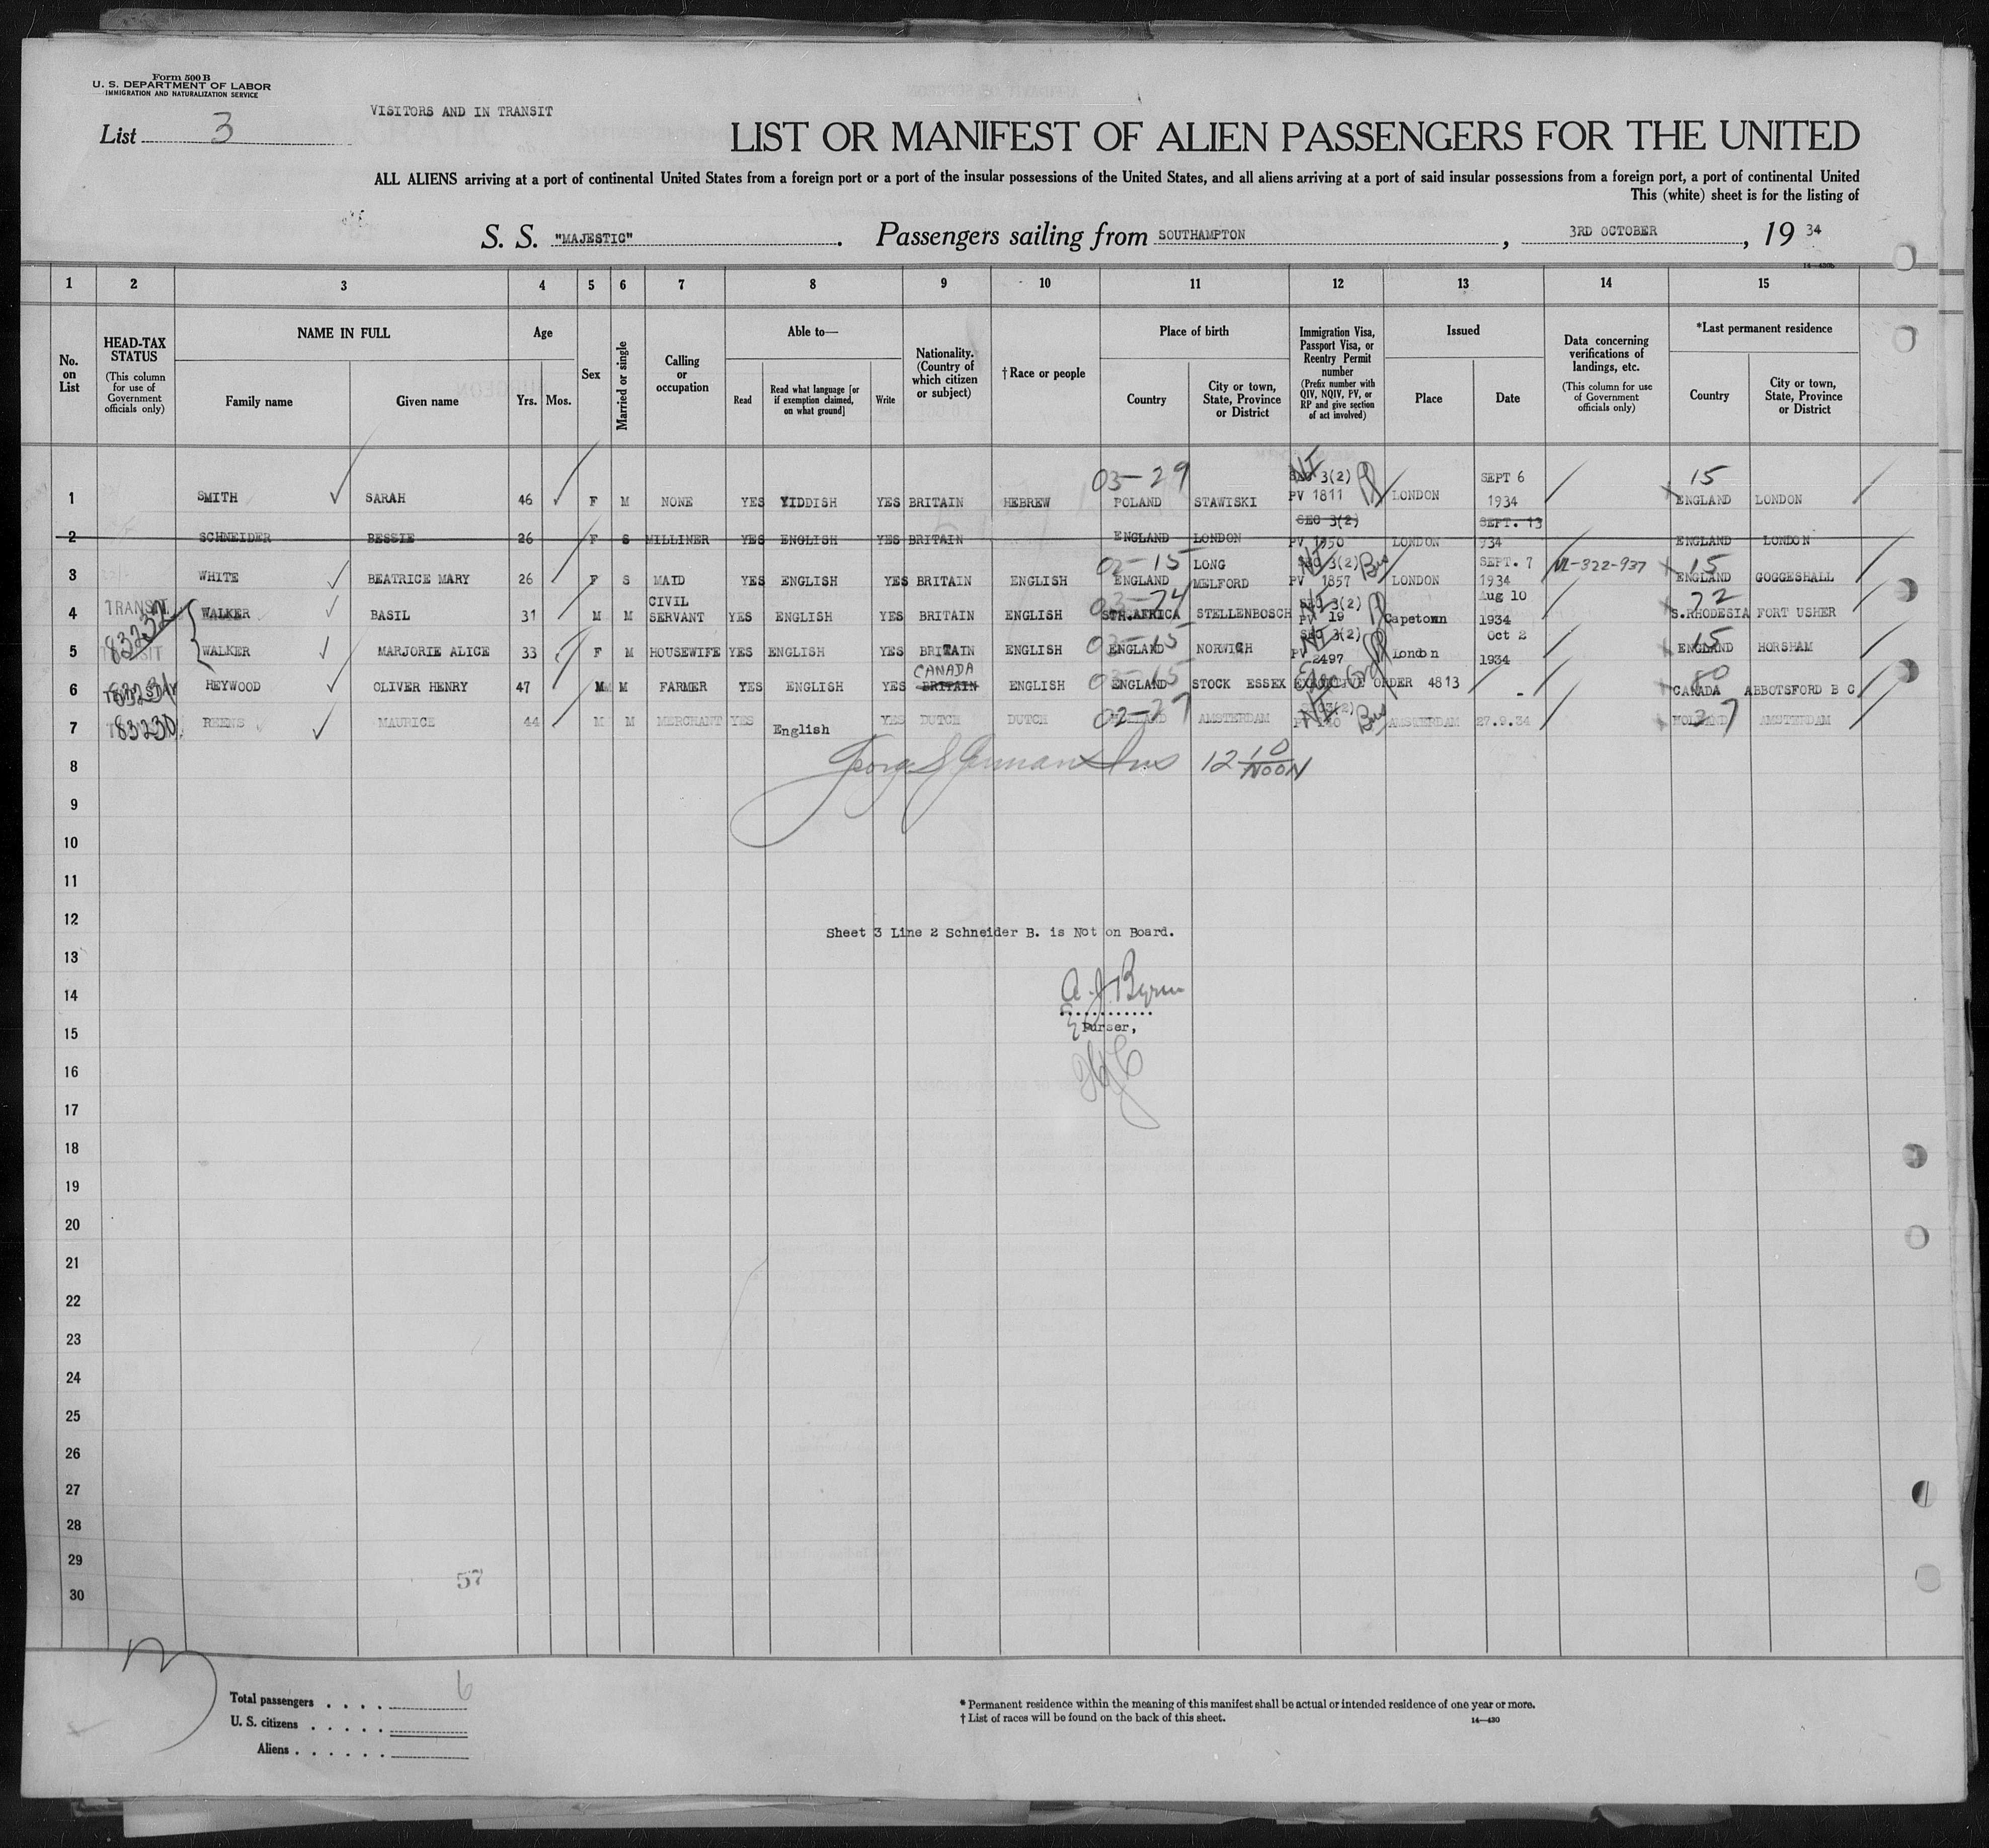 Form 500 B
U. S. DEPARTMENT OF LABOR
IMMIGRATION AND NATURALIZATION SERVICE
VISITORS AND IN TRANSIT
List 3
LIST OR MANIFEST OF ALIEN PASSENGERS FOR THE UNITED
ALL ALIENS arriving at a port of continental United States from a foreign port or a port of the insular possessions of the United States, and all aliens arriving at a port of said insular possessions from a foreign port, a port of continental United
This (white) sheet is for the listing of
S. S. "MAJESTIC". Passengers sailing from SOUTHAMPTON, 3RD OCTOBER, 19 34
14-430b
1 2 3 4 5 6 7 8 9 10 11 12 13 14 15
No. on List
HEAD-TAX STATUS (This column for use of Government officials only)
NAME IN FULL Family name Given name
Age Yrs. Mos.
Sex
Married or single
Calling or occupation
Able to— Read Read what language [or if exemption claimed, on what ground] Write
Nationality. (Country of which citizen or subject)
† Race or people
Place of birth Country City or town, State, Province or District
Immigration Visa, Passport Visa, or Reentry Permit number (Prefix number with QIV, NQIV, PV, or RP and give section of act involved)
Issued Place Date
Data concerning verifications of landings, etc. (This column for use of Government officials only)
*Last permanent residence Country City or town, State, Province or District
03-29 SEC 3(2) SEPT 6 15
1 SMITH SARAH 46 F M NONE YES YIDDISH YES BRITAIN HEBREW POLAND STAWISKI PV 1811 LONDON 1934 ENGLAND LONDON
SEC 3(2) SEPT. 13
2 SCHNEIDER BESSIE 26 F S MILLINER YES ENGLISH YES BRITAIN ENGLAND LONDON PV 1950 LONDON 934 ENGLAND LONDON
02-15 LONG SEC 3(2) Bus SEPT. 7 VL-322-937 15
3 WHITE BEATRICE MARY 26 F S MAID YES ENGLISH YES BRITAIN ENGLISH ENGLAND MELFORD PV 1857 LONDON 1934 ENGLAND GOGGESHALL
TRANSIT CIVIL SEC 3(2) Aug 10 72
4 83232 WALKER BASIL 31 M M SERVANT YES ENGLISH YES BRITAIN ENGLISH STH.AFRICA STELLENBOSCH PV 19 Capetown 1934 S.RHODESIA FORT USHER
02-15 SEC 3(2) Oct 2 15
5 WALKER MARJORIE ALICE 33 F M HOUSEWIFE YES ENGLISH YES BRITAIN ENGLISH ENGLAND NORWICH PV 2497 London 1934 ENGLAND HORSHAM
CANADA 80
6 83231 HEYWOOD OLIVER HENRY 47 M M FARMER YES ENGLISH YES BRITAIN ENGLISH ENGLAND STOCK ESSEX EXECUTIVE ORDER 4813 CANADA ABBOTSFORD B C
02-37 Bus 37
7 83230 REENS MAURICE 44 M M MERCHANT YES English YES DUTCH DUTCH AMSTERDAM AMSTERDAM 27.9.34 HOLLAND AMSTERDAM
8 12 10 NOON
9
10
11
12
Sheet 3 Line 2 Schneider B. is Not on Board.
13
14 A. J. Byrne
15 Purser,
16
17
18
19
20
21
22
23
24
25
26
27
28
29
57
30
Total passengers . . . . 6
U. S. citizens . . . . .
Aliens . . . . . .
* Permanent residence within the meaning of this manifest shall be actual or intended residence of one year or more.
† List of races will be found on the back of this sheet. 14—430